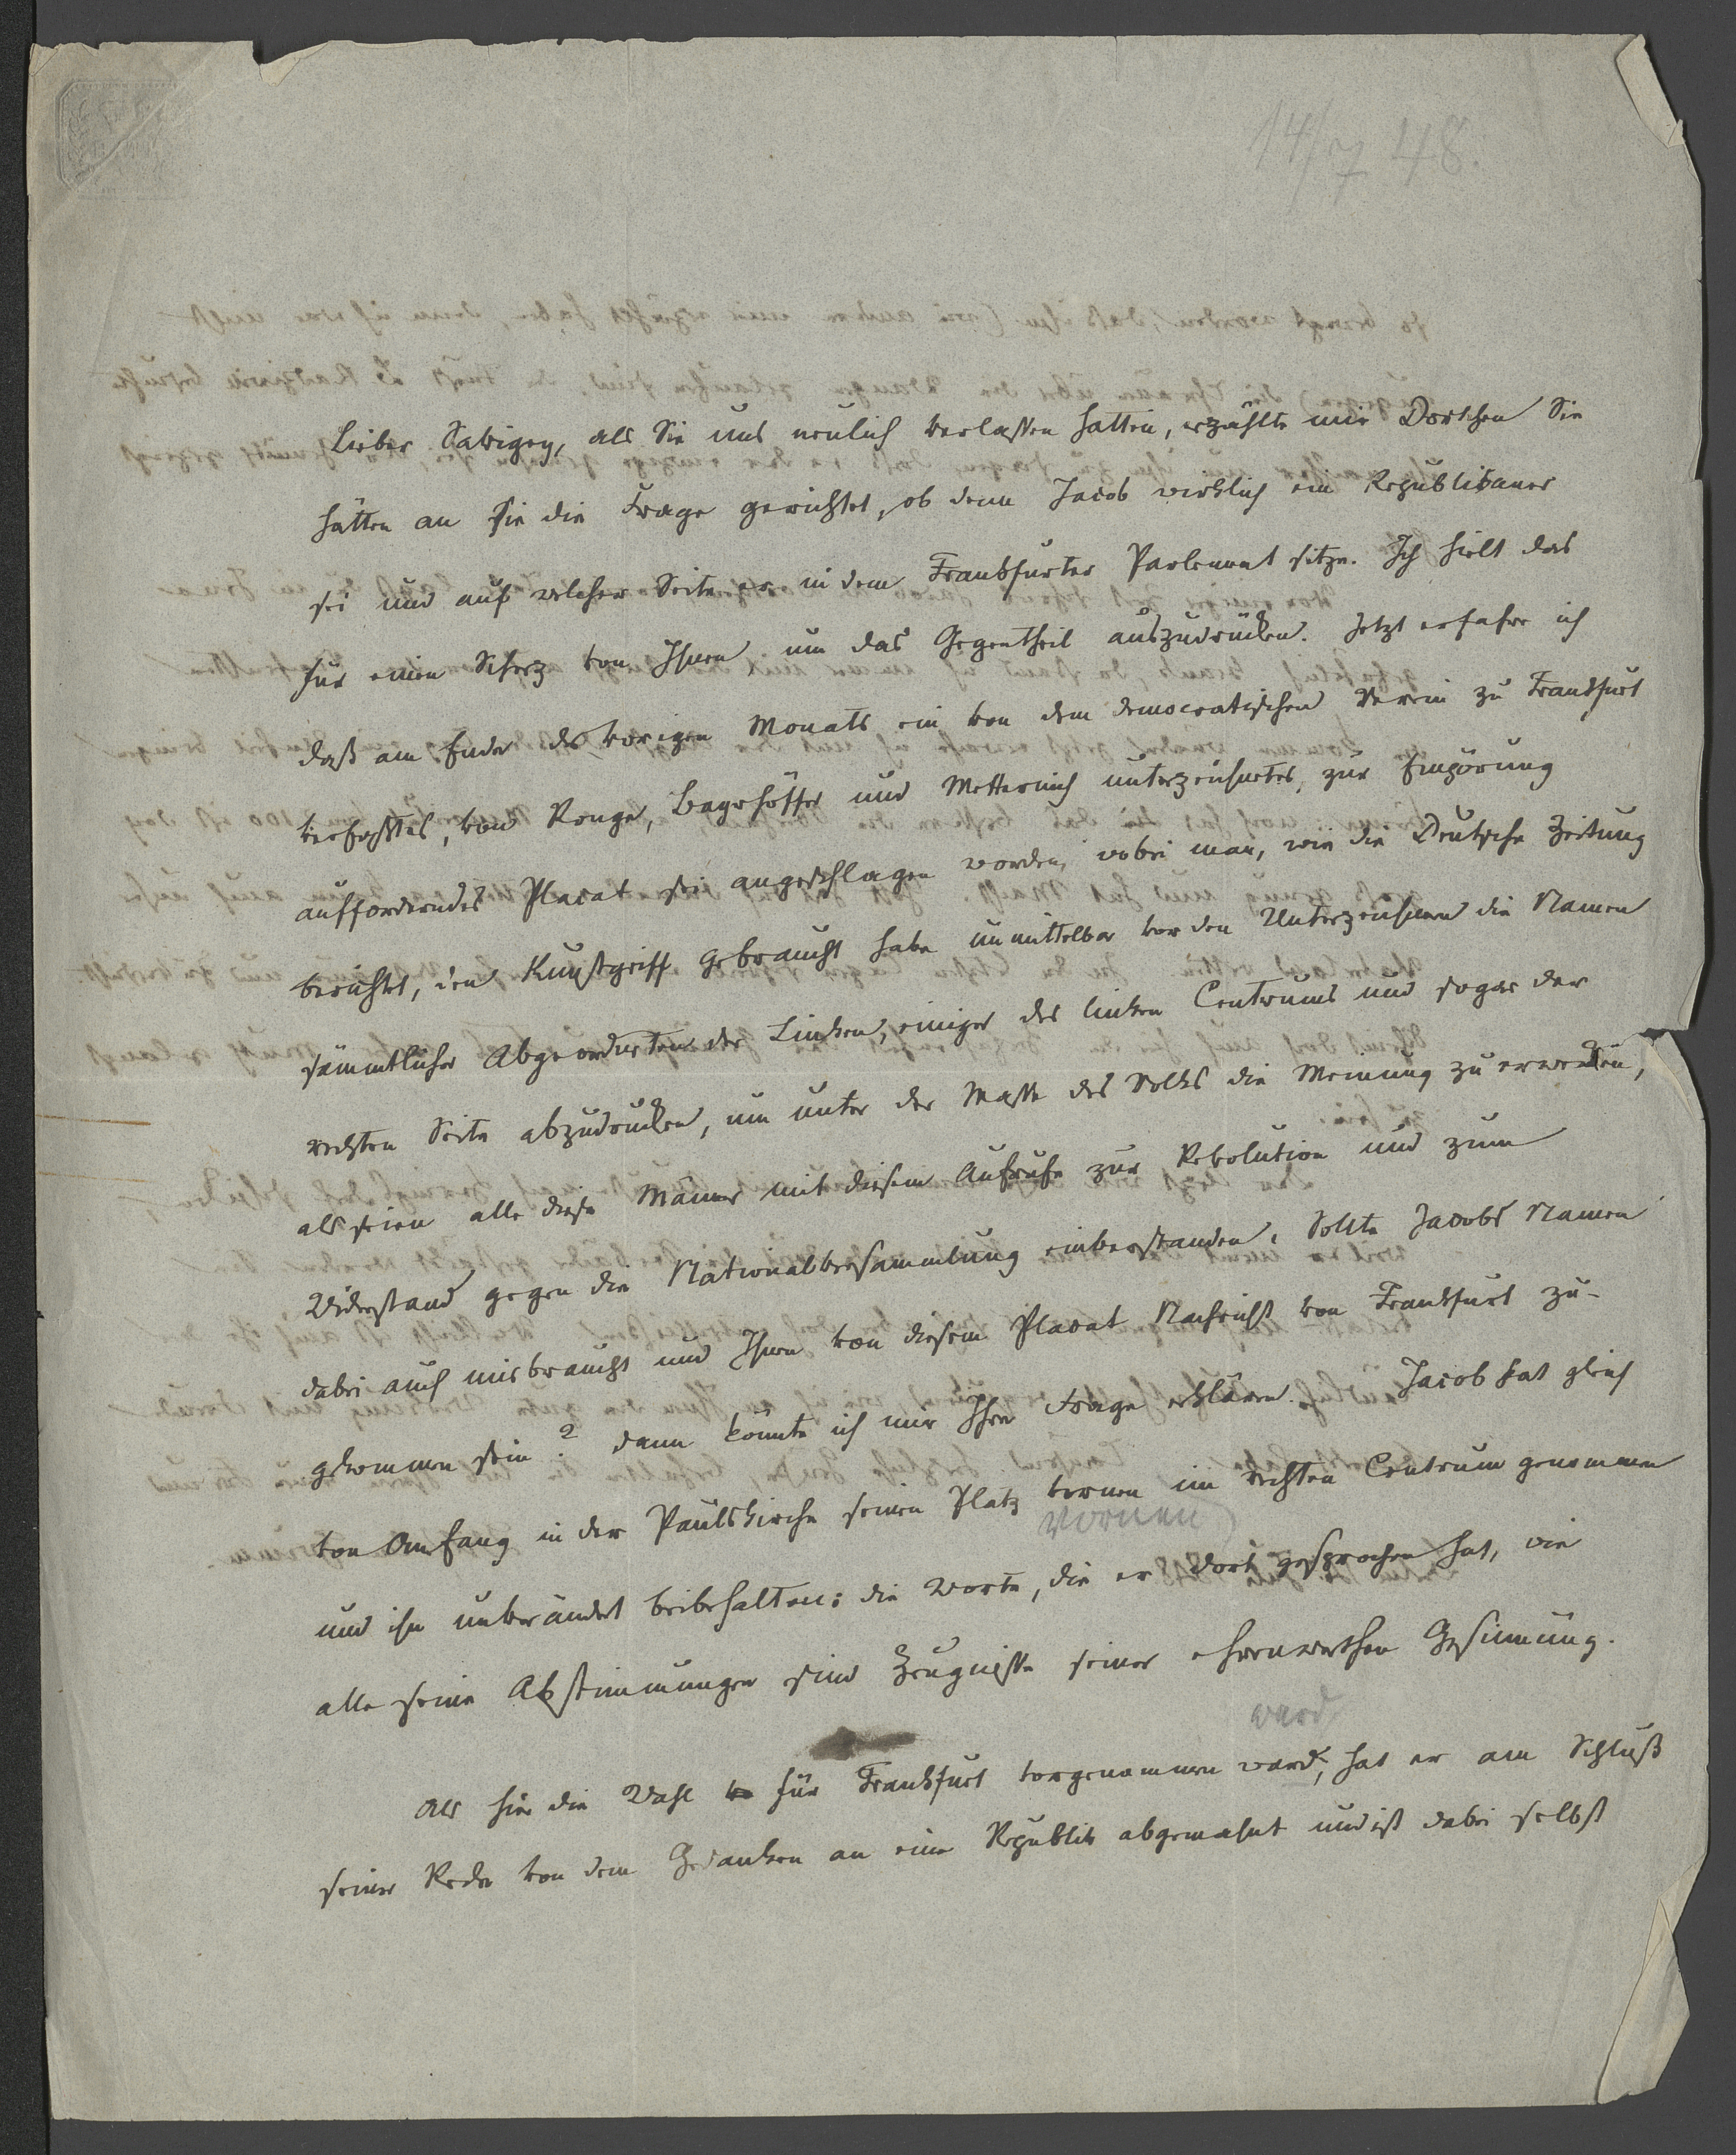 14/7 48.
Lieber Savigny, als Sie uns neulich verlassen hatten, erzählte mir Dortchen Sie
hätten an sie die Frage gerichtet, ob denn Jacob wirklich ein Republikaner
sei und auf welcher Seite er in dem Frankfurter Parlement sitze. Ich hielt das
für einen Scherz von Ihnen um das Gegentheil auszudrücken. Jetzt erfahre ich
daß am Ende des vorigen Monats ein von dem democratischen Verein zu Frankfurt
verfaßtes, von Ronge, Bayrhoffer und Metternich unterzeichnetes, zur Empörung
aufforderndes Placat sei angeschlagen worden, wobei man, wie die Deutsche Zeitung
berichtet, den Kunstgriff gebraucht habe unmittelbar vor den Unterzeichnern die Namen
sämmtlicher Abgeordneten der Linken, einiger des linken Centrums und sogar der
rechten Seite abzudrucken, um unter der Masse des Volks die Meinung zu erwecken,
als seien alle diese Männer mit diesem Aufrufe zur Revolution und zum
Widerstand gegen die Nationalversammlung einverstanden. Sollte Jacobs Namen
dabei auch misbraucht und Ihnen von diesem Placat Nachricht von Frankfurt zu-
gekommen sein? dann könnte ich mir Ihre Frage erklären. Jacob hat gleich
von Anfang in der Paulskirche seinen Platz vornen im rechten Centrum genommen
vornen
und ihn unverändert beibehalten: die Worte, die er dort gesprochen hat, wie
alle seine Abstimmungen sind Zeugnisse seiner ehrenwerthen Gesinnung.
ward
Als hier die Wahl für Frankfurt vorgenommen ward, hat er am Schluß
seiner Rede von dem Gedanken an eine Republik abgemahnt und ist dabei selbst